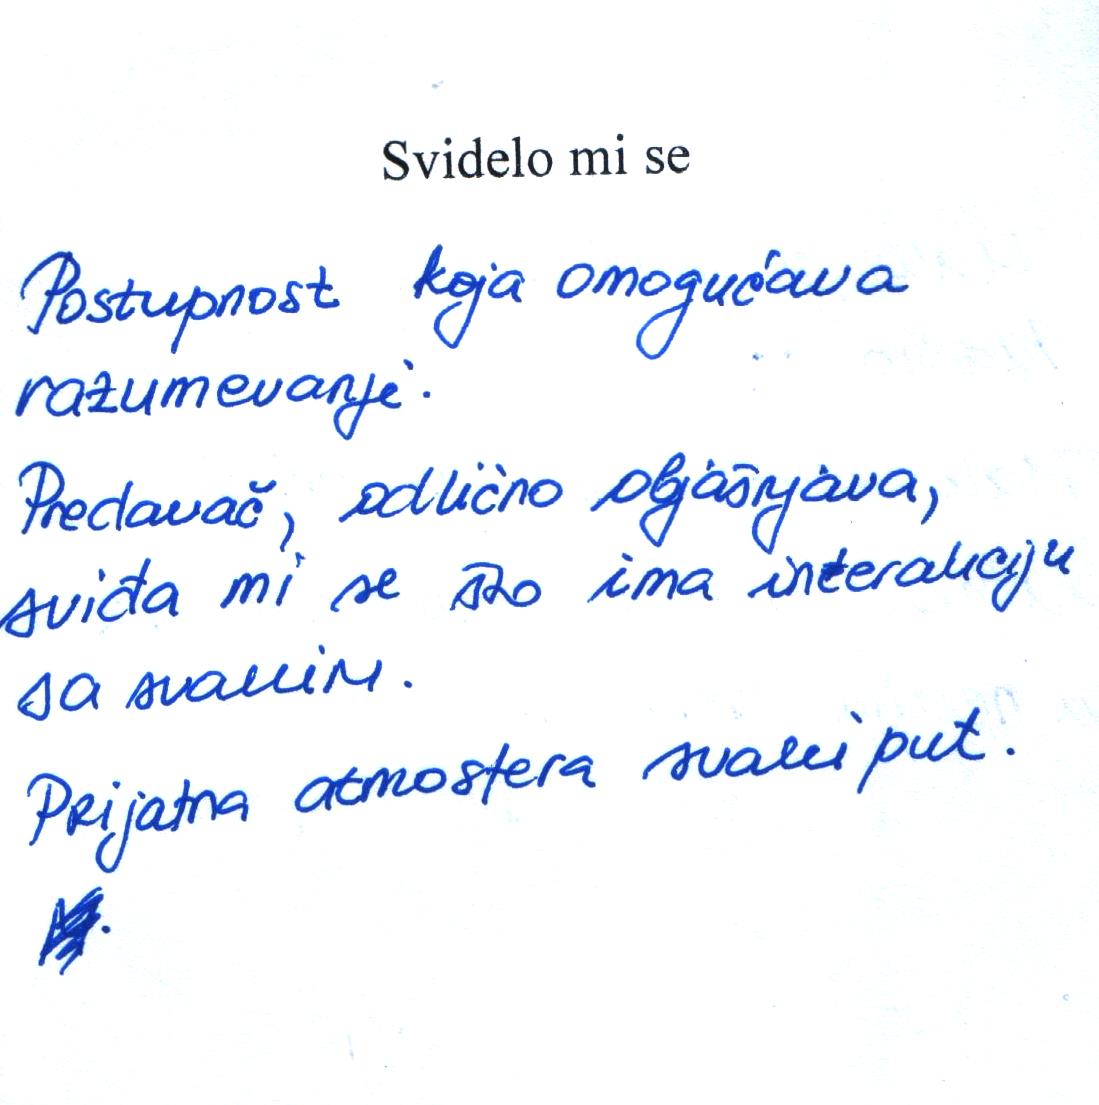 Svidelo mi se
Postupnost koja omogućava
razumevanje.
Predavač, odlično objašnjava,
sviđa mi se što ima interakciju
sa svakim.
Prijatna atmosfera svaki put.